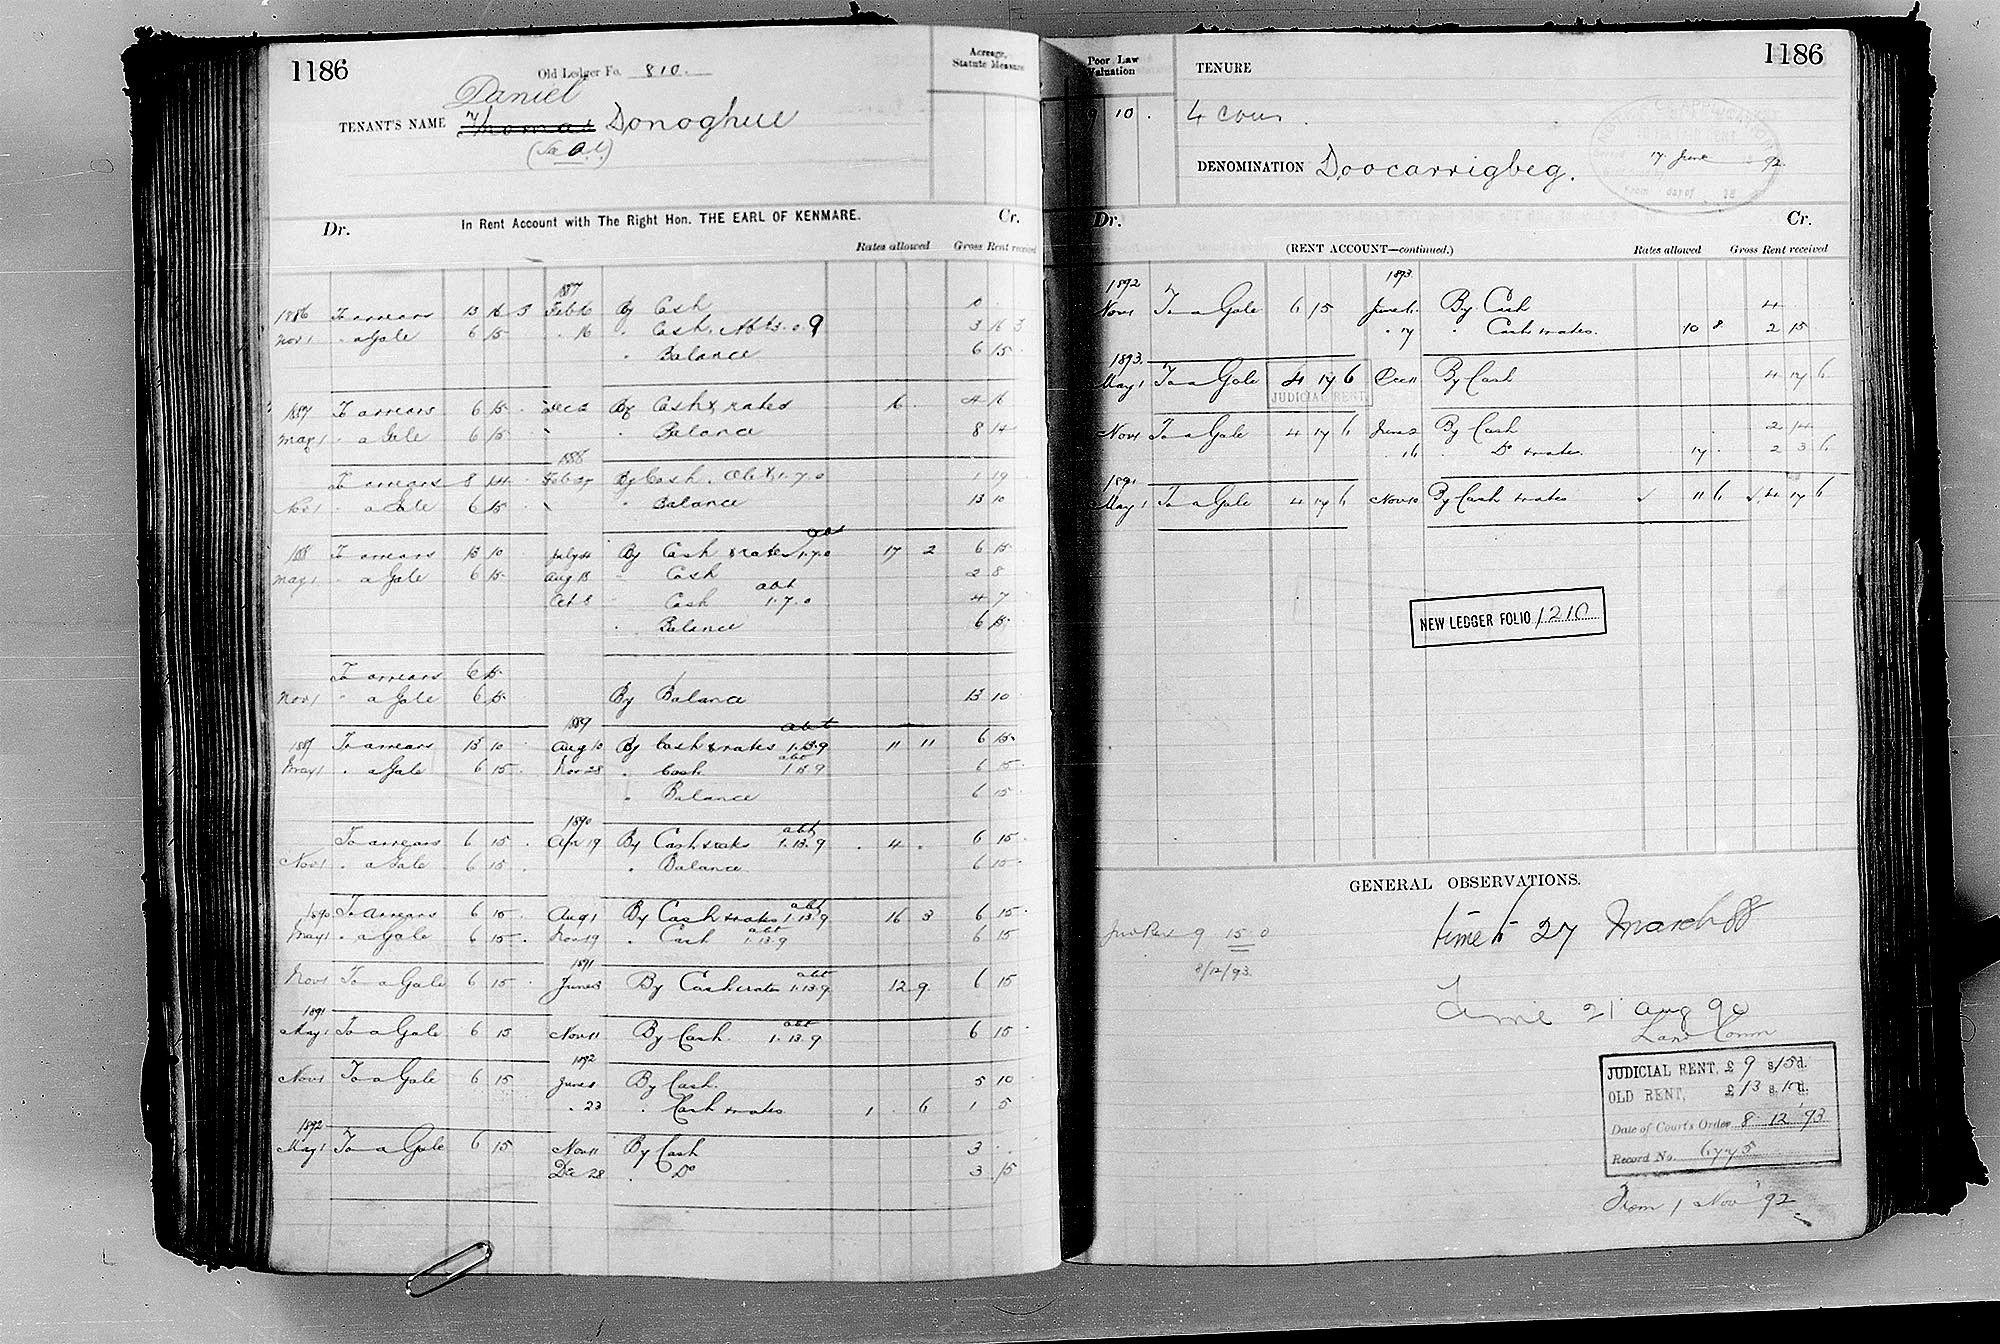 1186
Old Ledger Fo. 810.
Acreage, Statute Measure
Daniel
TENANT'S NAME Thomas Donoghue
In Rent Account with The Right Hon. THE EARL OF KENMARE.
Dr. Cr.
Rates allowed Gross Rent received
1887
1886 To arrears 13 16 3 Feb 10 By Cash 10
Nov 1 " a Gale 6 15 " 16 " Cash. Abt 3.0.9 3 16 3
" Balance 6 15
1887 To arrears 6 15 . Dec 12 By Cash & rates 16 . 4 16
May 1 " a Gale 6 15 " Balance 8 14
1888
To arrears 8 14 . Feb 27 By Cash. Abt 1.7.0 1 19
Nov 1 " a Gale 6 15 . " Balance 13 10
abt
1888 To arrears 13 10 July 21 By Cash & rates 1.7.0 17 2 6 15
May 1 " a Gale 6 15 . Aug 13 " Cash 2 8
abt
Oct 8 " Cash 1.7.0 4 7
" Balance 6 15
To arrears 6 15
Nov 1 " a Gale 6 15 By Balance 13 10
1889 abt
1889 To arrears 13 10 . Aug 10 By Cash & rates 1.13.9 11 11 6 15
abt
May 1 " a Gale 6 15 . Nov 28 " Cash 1.13.9 6 15
" Balance 6 15
1890 abt
To arrears 6 15 . Apr 19 By Cash & rates 1.13.9 . 4 . 6 15
Nov 1 " a Gale 6 15 . " Balance 6 15
abt
1890 To arrears 6 15 . Aug 1 By Cash & rates 1.13.9 16 3 6 15
abt
May 1 " a Gale 6 15 . Nov 19 " Cash 1.13.9 6 15
1891 abt
Nov 1 To a Gale 6 15 . June 3 By Cash & rates 1.13.9 12 9 6 15
1891 abt
May 1 To a Gale 6 15 Nov 11 By Cash 1.13.9 6 15
1892
Nov 1 To a Gale 6 15 June 1 By Cash. 5 10
" 23 " Cash & rates 1 . 6 1 5
1892
May 1 To a Gale 6 15 Nov 11 By Cash 3 .
Dec 28 " Do 3 15
1186
Poor Law Valuation
TENURE
9 10 . 4 cows.
DENOMINATION Doocarrigbeg.
17 June 92
Dr. Cr.
(RENT ACCOUNT—continued.)
Rates allowed Gross Rent received
1892 1893
Nov 1 To a Gale 6 15 June 6 By Cash 4 .
" 17 " Cash & rates. 10 8 2 15
1893.
May 1 To a Gale 4 17 6 Dec 11 By Cash 4 17 6
JUDICIAL RENT
Nov 1 To a Gale 4 17 6 June 2 By Cash 2 14
" 16 " Do & rates. 17 . 2 3 6
1894
May 1 To a Gale 4 17 6 Nov 10 By Cash & rates ✓ 11 6 ✓ 4 17 6
NEW LEDGER FOLIO 1210
GENERAL OBSERVATIONS.
time to 27 March 88
Jud Rent 9 15 0
8/12/93
Time 21 Aug 90
Land Comm
JUDICIAL RENT, £ 9 s. 15 d.
OLD RENT, £ 13 s. 10 d.
Date of Court's Order 8 12 '93
Record No. 6775
From 1 Nov '92